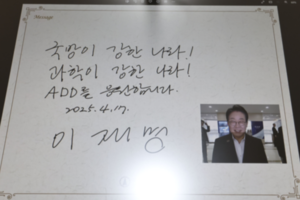 Message
국방이 강한 나라!
과학이 강한 나라!
ADD를 응원합니다.
2025. 4. 17.
이재명